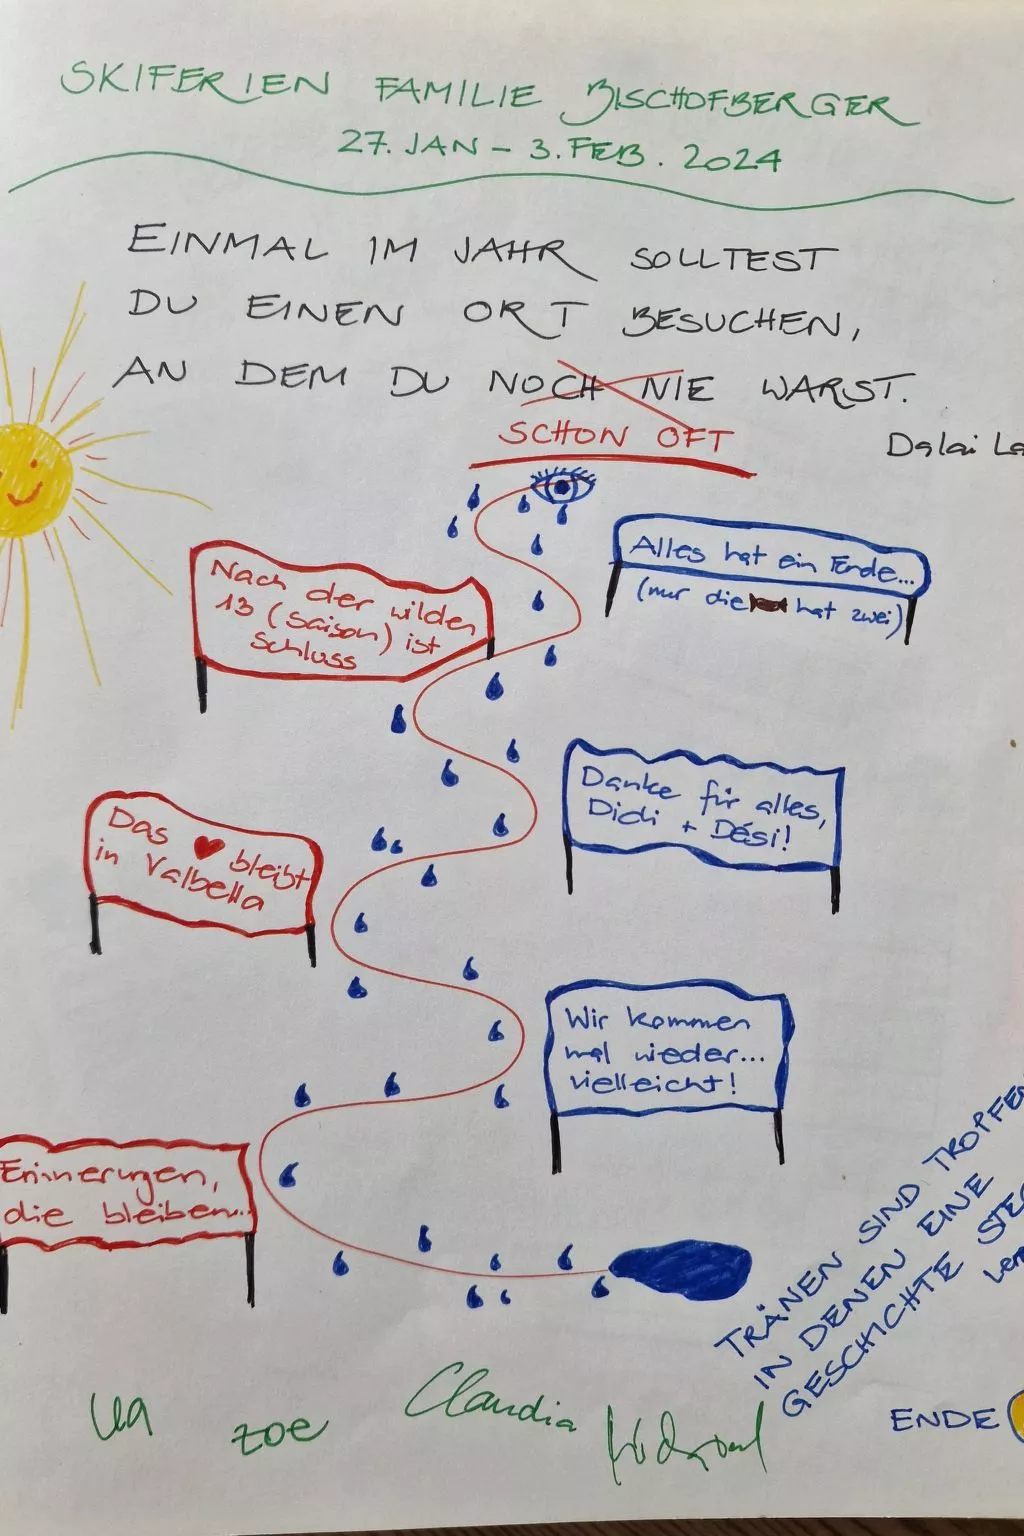 SKIFERIEN FAMILIE BISCHOFBERGER
27. JAN - 3. FEB. 2024
EINMAL IM JAHR SOLLTEST
DU EINEN ORT BESUCHEN,
AN DEM DU NOCH NIE WARST.
SCHON OFT
Dalai La
Alles hat ein Ende...
(nur die hat zwei)
Nach der wilden
13 (Saison) ist
Schluss
Danke für alles,
Didi + Dési!
Das ❤ bleibt
in Valbella
Wir kommen
mal wieder...
vielleicht!
Erinnerungen,
die bleiben...
TRÄNEN SIND TROPFEN
IN DENEN EINE
GESCHICHTE STEC
Lea
zoe
Claudia
ENDE